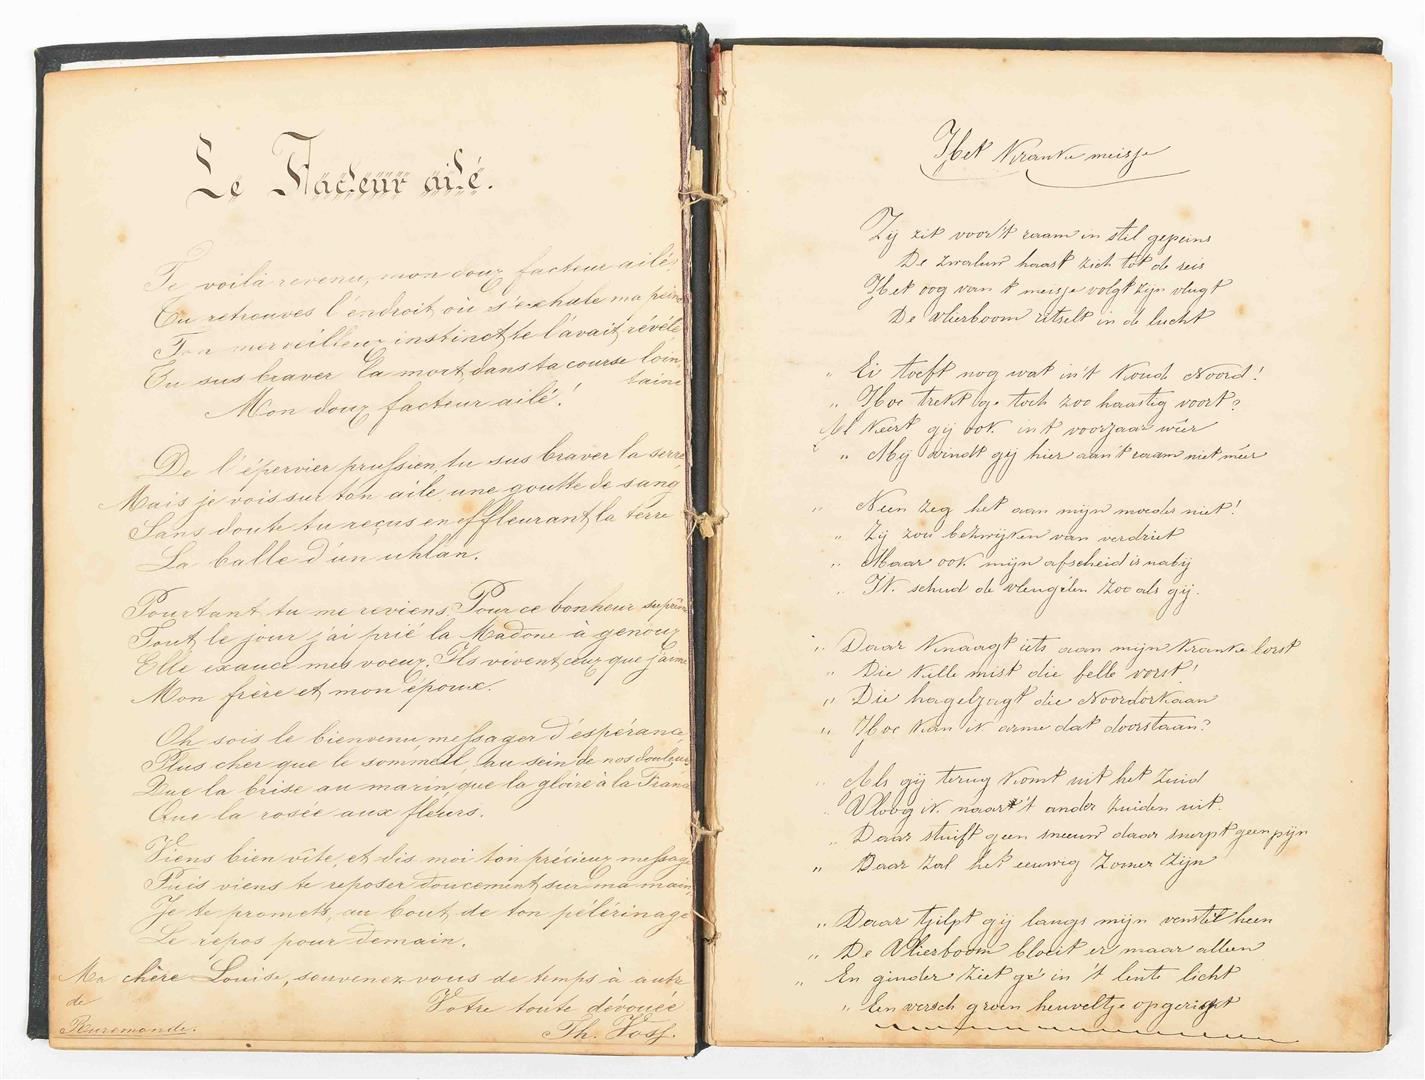 Le Facteur ailé.
Te voilà revenu, mon doux facteur ailé,
Tu retrouves l'endroit, où s'exhale ma peine
Ton merveilleux instinct te l'avait révélé
Tu sus braver la mort, dans ta course loin
taine
Mon doux facteur ailé!
De l'épervier prussien, tu sus braver la serre,
Mais je vois sur ton aile une goutte de sang
Sans doute tu reçus en effleurant la terre
La balle d'un uhlan.
Pourtant tu me reviens. Pour ce bonheur suprême
Tout le jour j'ai prié la Madone à genoux
Elle exauce mes voeux. Ils vivent, ceux que j'aime
Mon frère et mon époux.
Oh sois le bienvenu, messager d'espérance,
Plus cher que le sommeil au sein de nos douleurs
Que la brise au marin, que la gloire à la France
Que la rosée aux fleurs.
Viens bien vîte, et dis moi ton précieux message
Puis viens te reposer doucement sur ma main,
Je te promets, au bout de ton pélérinage
Le repos pour demain.
Ma chère Louise, souvenez vous de temps à autre
de Votre toute dévouée
Ruremonde. Th. Vosf.
Het Kranke meisje
Zij zit voor't raam in stil gepeins
De zwaluw haast zich tot de reis
Het oog van t meisje volgt zijn vlugt
De Vlierboom ritselt in de lucht
„ Ei toeft nog wat in't koud Noord!
„ Hoe trekt ge toch zoo haastig voort?
Al keert gij ook in t voorjaar wêer
„ Mij vindt gij hier aan t raam niet mêer
„ Neen zeg het aan mijn moeder niet!
„ Zij zou bezwijken van verdriet
„ Maar ook mijn afscheid is nabij
„ Ik schud de vleugelen zoo als gij.
„ Daar knaagt iets aan mijn kranke borst
„ Die kille mist die felle vorst!
„ Die hageljagt die Noordorkaan
„ Hoe kan ik arme dat doorstaan?
„ Als gij terug komt uit het zuid
Vloog ik naar 't ander zuiden uit.
„ Daar stuift geen sneeuw daar snerpt geen pijn
„ Daar zal het eeuwig Zomer zijn
„ Daar tjilpt gij langs mijn venster heen
„ De Vlierboom bloeit er maar alleen
„ En ginder ziet ge in 't lente licht
„ Een versch groen heuveltje opgerigt